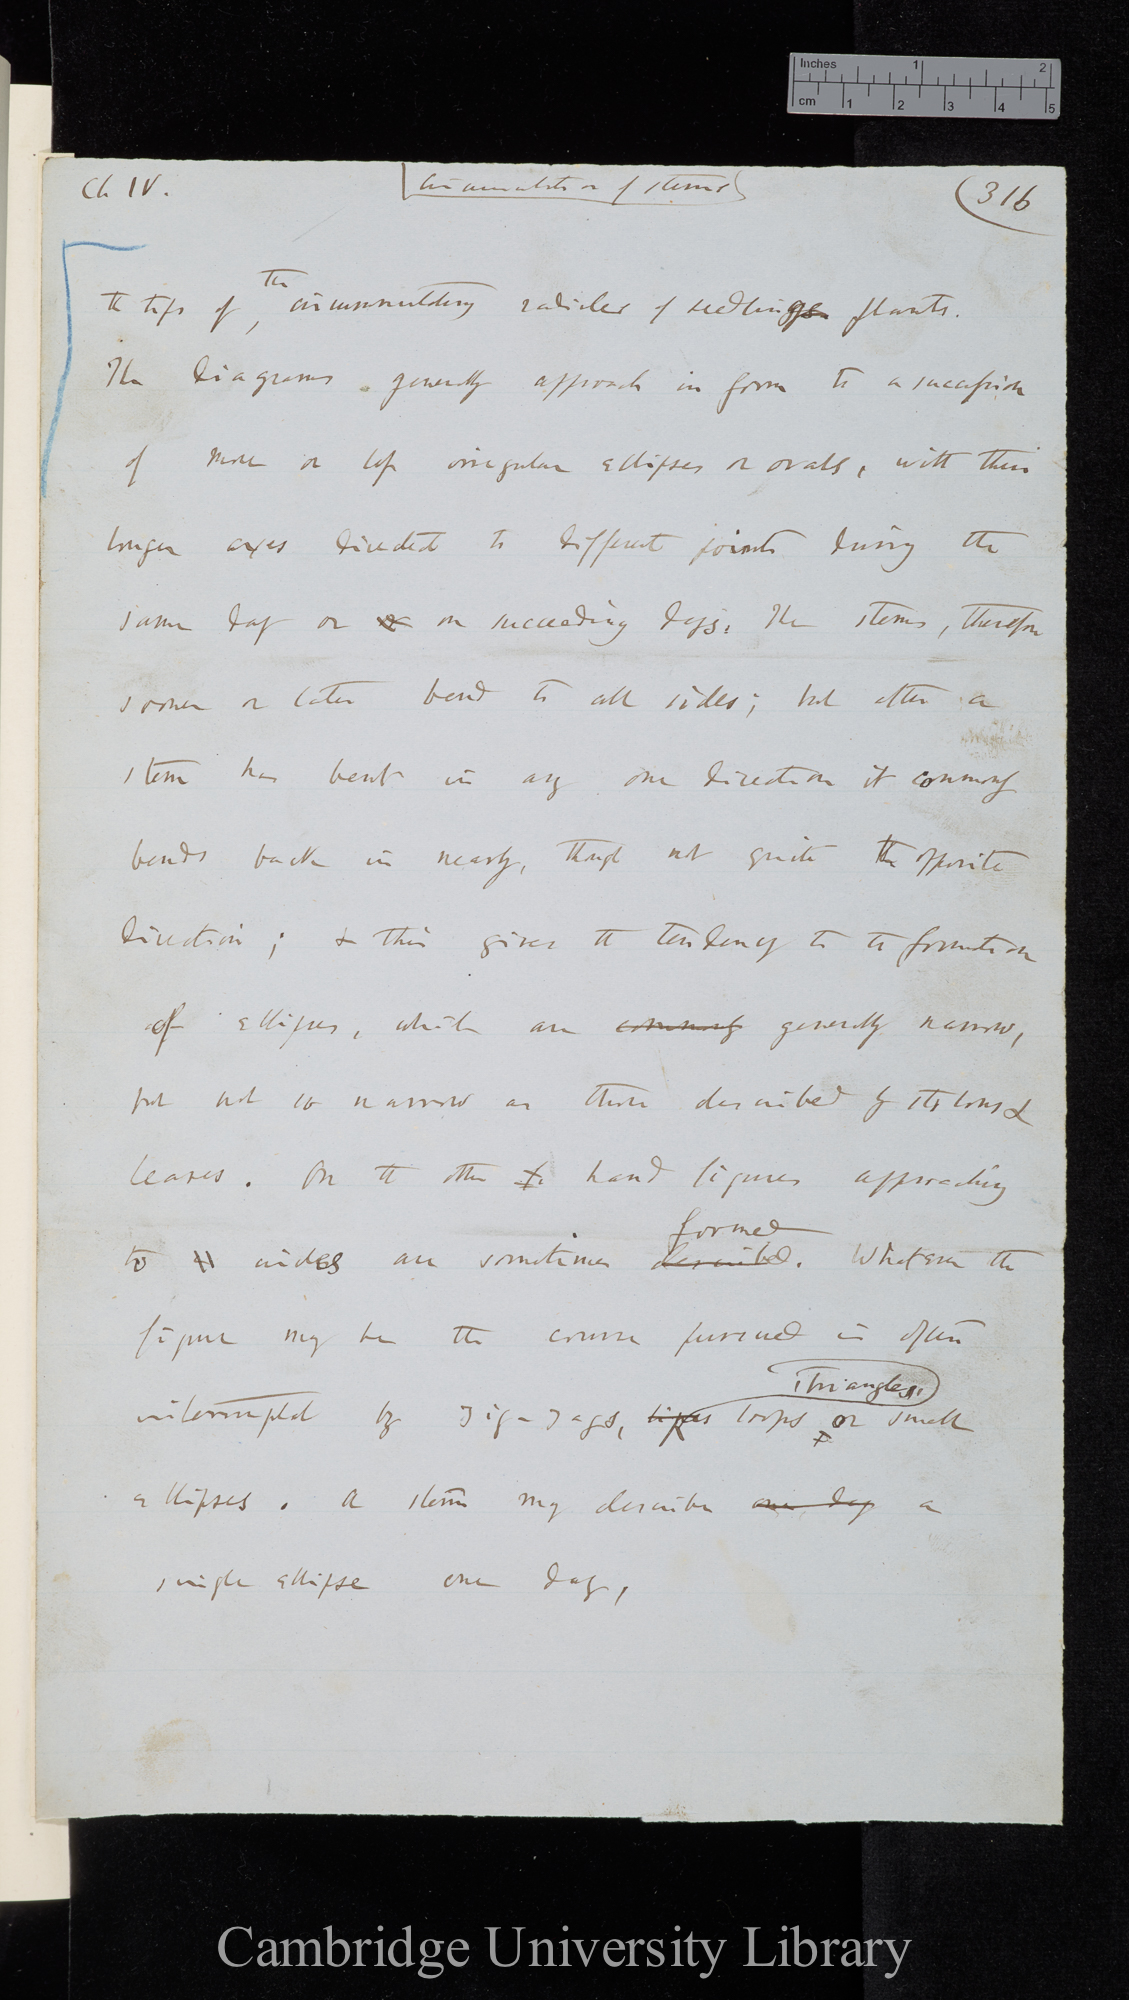 Inches 1 2
cm 1 2 3 4 5
Ch IV.
Circumnutation of stems
(316
the
the tips of circumnutating radicles of seedling plants.
The diagrams generally approach in form to a succession
of more or less irregular ellipses or ovals, with their
longer axes directed to different points during the
same day or on succeeding days. The stems, therefore
sooner or later bend to all sides; but after a
stem has bent in any one direction it commonly
bends back in nearly, though not quite the opposite
direction; & this gives the tendency to the formation
of ellipses, which are commonly generally narrow,
but not so narrow as those described by &
leaves. On the other hand figures approaching
formed
to circles are sometimes described. Whatever the
figure may be the course pursued is often
triangles,
interrupted by zig-zags, loops or small
ellipses. A stem may describe one day a
single ellipse one day,
Cambridge University Library